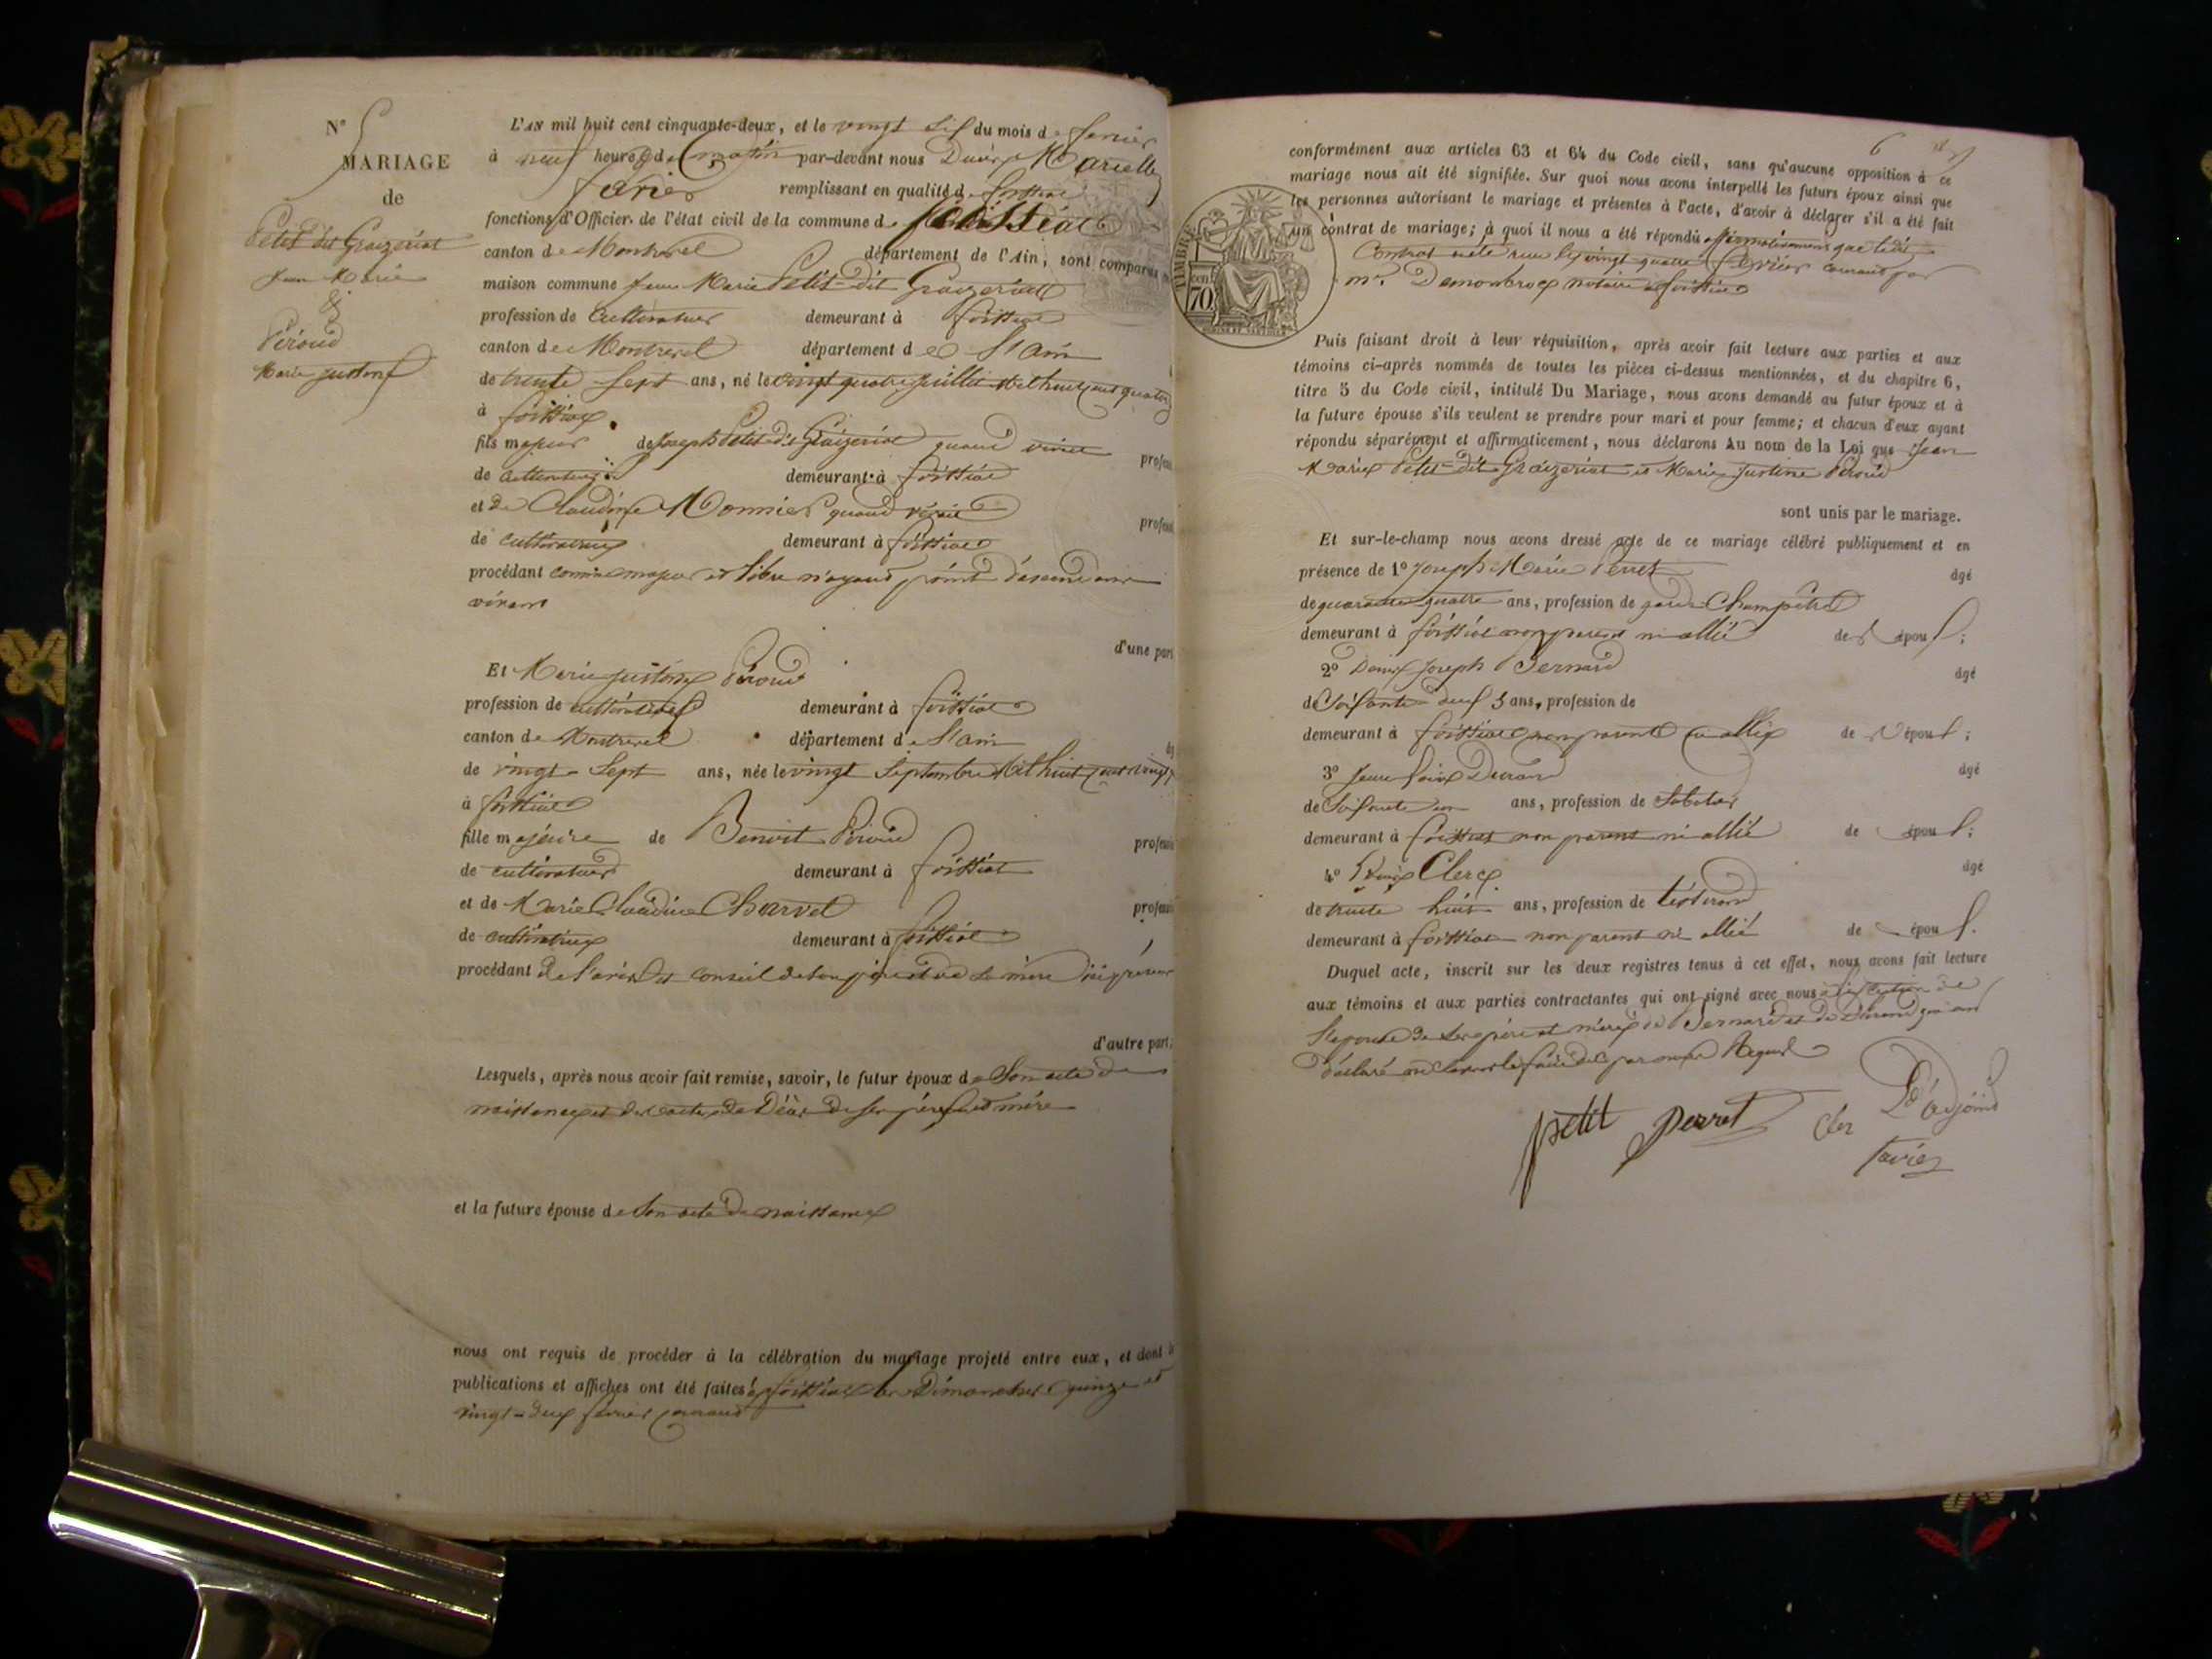 N° 5
MARIAGE
de
Petit dit Graizeriat
Jean Marie
&
Péroud
Marie justine
L'AN mil huit cent cinquante-deux, et le vingt six du mois de fevrier
à neuf heures de matin par-devant nous
favier remplissant en qualité d
fonctions d'Officier de l'état civil de la commune de foissiat
canton de Montrevel département de l'Ain, sont comparus
maison commune jean Marie Petit-dit Graizeriat
profession de cultivateur demeurant à foissiat
canton de Montrevel département de l'ain
de trente sept ans, né le vingt quatre juillet mil huit cent quatorze
à foissiat
fils majeur de joseph Petit-dit Graizeriat quand vivait
de cultivateur demeurant à foissiat
et de Claudine Monnier quand vivait
de cultivatrice demeurant à foissiat
procédant comme majeur et libre n'ayant point d'ascendant
vivant
d'une part
Et Marie justine Péroud
profession de cultivatrice demeurant à foissiat
canton de Montrevel département de l'ain
de vingt-sept ans, née le vingt septembre mil huit cent vingt
à foissiat
fille majeure de Benoit Péroud
de cultivateur demeurant à foissiat
et de Marie Claudine Charvet
de cultivatrice demeurant à foissiat
procédant de l'avis et conseil de son père et de sa mère ici présent
d'autre part;
Lesquels, après nous avoir fait remise, savoir, le futur époux de son acte de
naissance et des actes de décès de ses père et mère
et la future épouse de son acte de naissance
nous ont requis de procéder à la célébration du mariage projeté entre eux, et dont
publications et affiches ont été faites à foissiat les dimanches quinze et
vingt-deux fevrier courant
6
conformément aux articles 63 et 64 du Code civil, sans qu'aucune opposition à ce
mariage nous ait été signifiée. Sur quoi nous avons interpellé les futurs époux ainsi que
les personnes autorisant le mariage et présentes à l'acte, d'avoir à déclarer s'il a été fait
un contrat de mariage; à quoi il nous a été répondu affirmativement que le dit
Contrat a été reçu le vingt quatre fevrier courant par
mr. Demonbroux notaire à foissiat
TIMBRE
70
Puis faisant droit à leur réquisition, après avoir fait lecture aux parties et aux
témoins ci-après nommés de toutes les pièces ci-dessus mentionnées, et du chapitre 6,
titre 5 du Code civil, intitulé Du Mariage, nous avons demandé au futur époux et à
la future épouse s'ils veulent se prendre pour mari et pour femme; et chacun d'eux ayant
répondu séparément et affirmativement, nous déclarons Au nom de la Loi que Jean
Marie Petit-dit Graizeriat et Marie justine Péroud
sont unis par le mariage.
Et sur-le-champ nous avons dressé acte de ce mariage célébré publiquement et en
présence de 1° joseph Marie Perret âgé
de quarante quatre ans, profession de garde Champêtre
demeurant à foissiat non parent ni allié des époux;
2° Denis joseph Bernard âgé
de soixante deux ans, profession de
demeurant à foissiat non parent ni allié des époux;
3° Jean Durand âgé
de soixante un ans, profession de sabotier
demeurant à foissiat non parent ni allié des époux;
4° Clerc âgé
de trente huit ans, profession de tisserand
demeurant à foissiat non parent ni allié des époux.
Duquel acte, inscrit sur les deux registres tenus à cet effet, nous avons fait lecture
aux témoins et aux parties contractantes qui ont signé avec nous à l'exception de
l'épouse de ses père et mère de Bernard et de Durand qui ont
déclaré ne savoir le faire de ce par nous Requis
petit perret Cler L'adjoint
favier